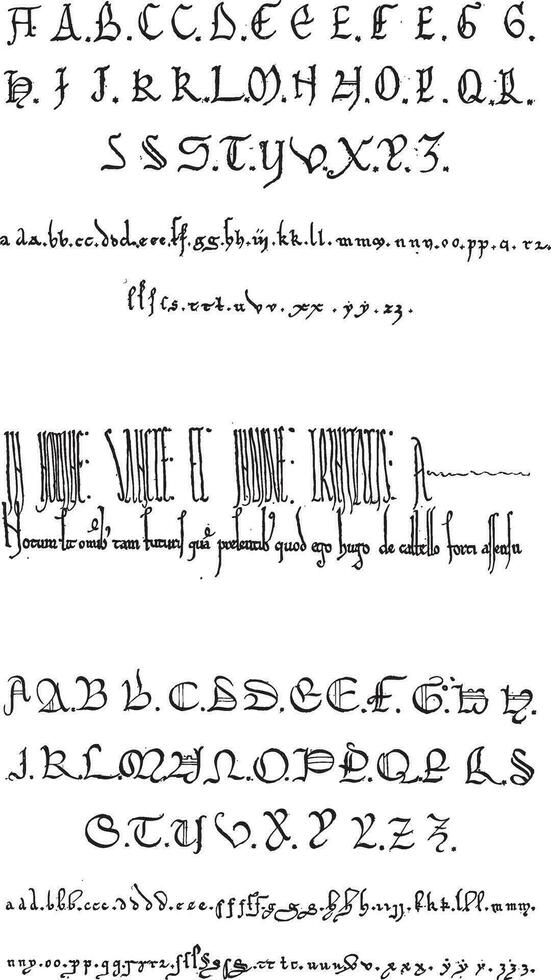 A A.B.C C.D.E E E.F E.G G.
H. I J.K K.L.M.N H.O.P.Q.R.
S S S.T.V V.X.Y.Z.
a aa.bb.cc.ddd.eee.ff.gg.hh.iij.kk.ll.mmm.nnn.oo.pp.q.r2.
ſſſſs.ttt.uvv.xx.ẏẏ.zz.
IN NOMINE: SANCTE: ET INDIVIDUE: TRINITATIS: A
Notum sit omĩb; tam futuris quã presentib; quod ego hugo de castello forti assensu
A A.B B.C.D D.E E.F.G.H H.
J.K.L.M M N.O.P P.Q.R R.S
S.T.U V.X.Y Y.Z Z.
aad.bbb.ccc.dddd.eee.ffff.ggg.hhh.iijj.kkk.lll.mmm.
nny.oo.pp.qq.rrr2.ſſſsss.tttt.uuvv.xxx.ẏẏ.ẏ.zzz.